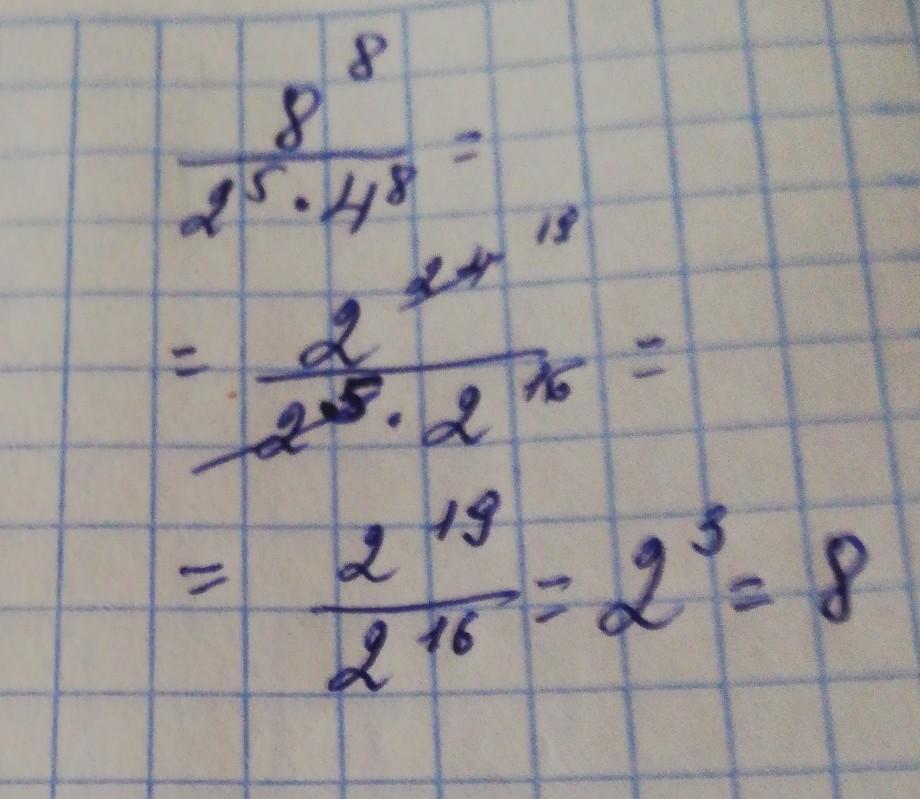 8^8 / 2^5 · 4^8 =
= 2^24 19 / 2^5 · 2^16 =
= 2^19 / 2^16 = 2^3 = 8